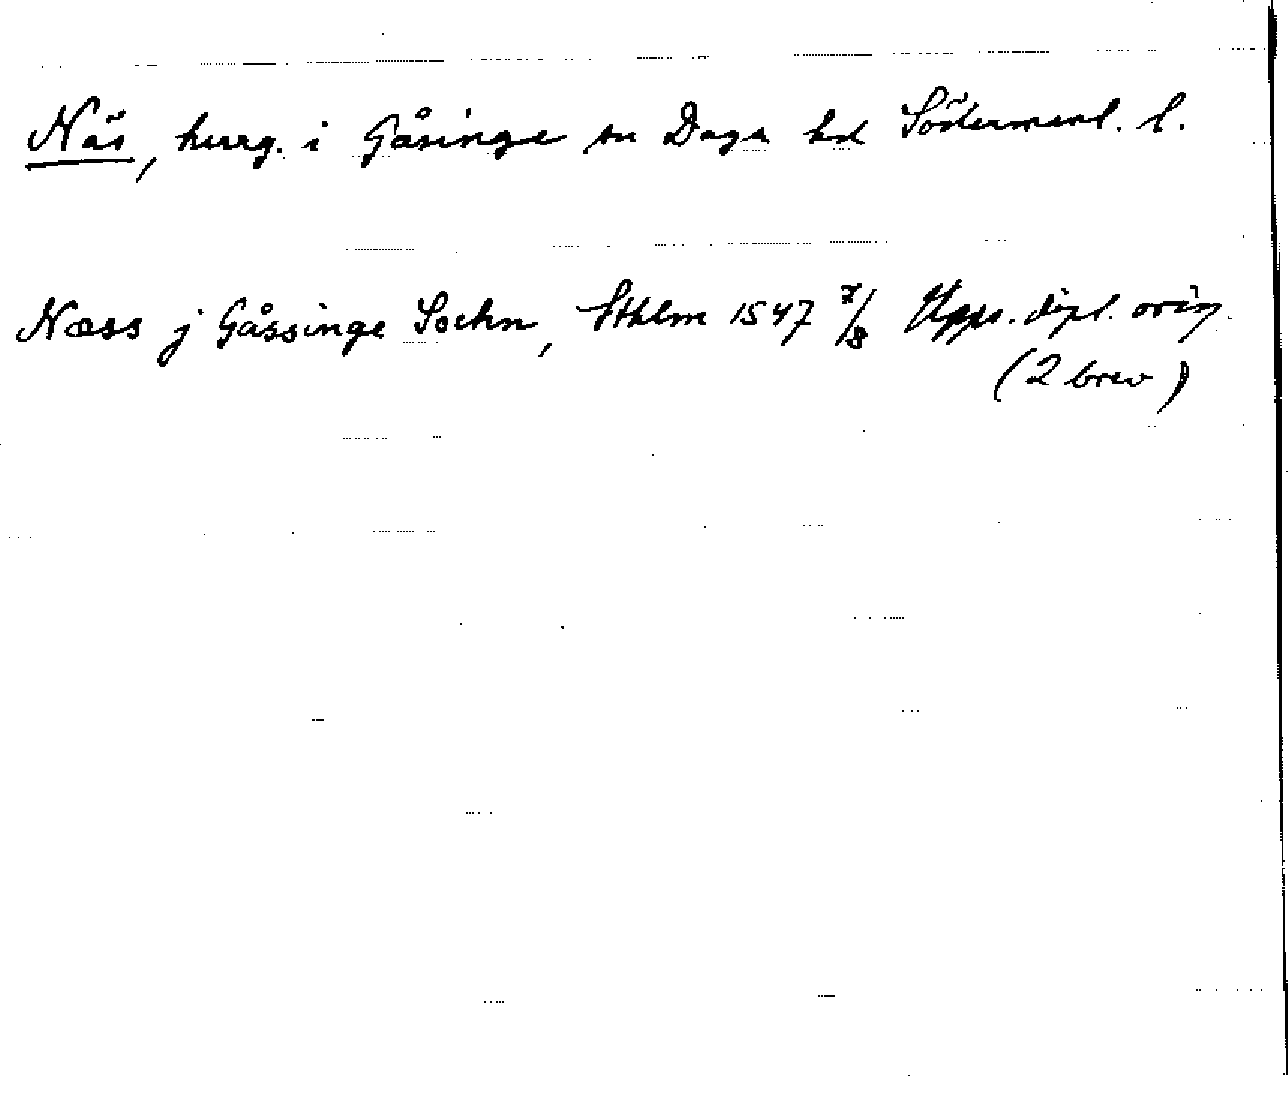 Näs, herrg. i Gåsinge sn Daga hd Södermanl. l.
Næss j Gåssinge Sochn, Sthlm 1547 7/8 Upps. dipl. orig.
(2 brev)